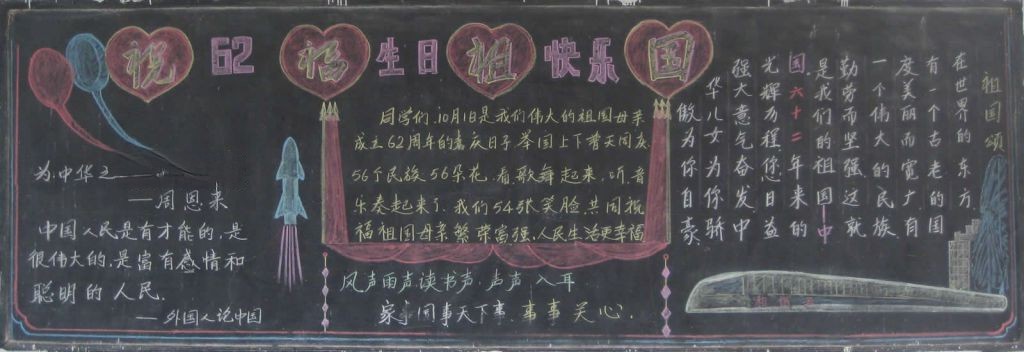 祝62福生日祖快乐国
为中华之
——周恩来
中国人民是有才能的,是
很伟大的,是富有感情和
聪明的人民.
——外国人说中国
同学们,10月1日是我们伟大的祖国母亲
成立62周年的喜庆日子举国上下普天同庆
56个民族56朵花,看,歌舞起来,听,音
乐奏起来了,我们54张笑脸,共同祝
福祖国母亲繁荣富强,人民生活更幸福
风声雨声读书声,声声入耳
家事国事天下事,事事关心.
祖国颂
在世界的东方
有一个古老的国
度美丽而宽广有
一个伟大的民族
勤劳而坚强这就
是我们的祖国中
国六十二年来的
光辉历程您日益
强大意气奋发中
华儿女为你骄
傲为你自豪